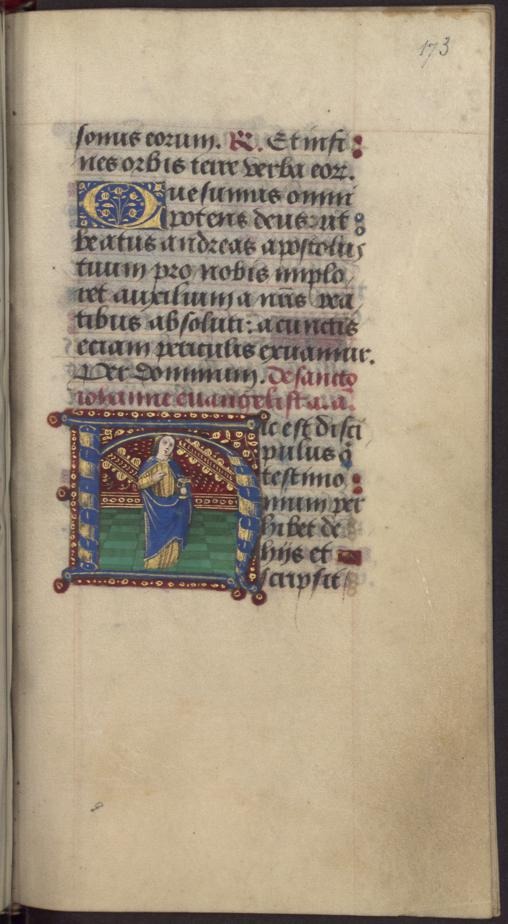 173
sonus eorum. R. Et in fi
nes orbis terre verba eor.
Quesumus omni
potens deus: ut
beatus andreas apostolus
tuum pro nobis implo
ret auxilium a nris rea
tibus absoluti: a cunctis
eciam periculis exuamur.
Per dominum. de sancto
iohanne euangelista. a.
Hic est disci
pulus q
testimo
nium per
hibet de
hijs et
scripsit